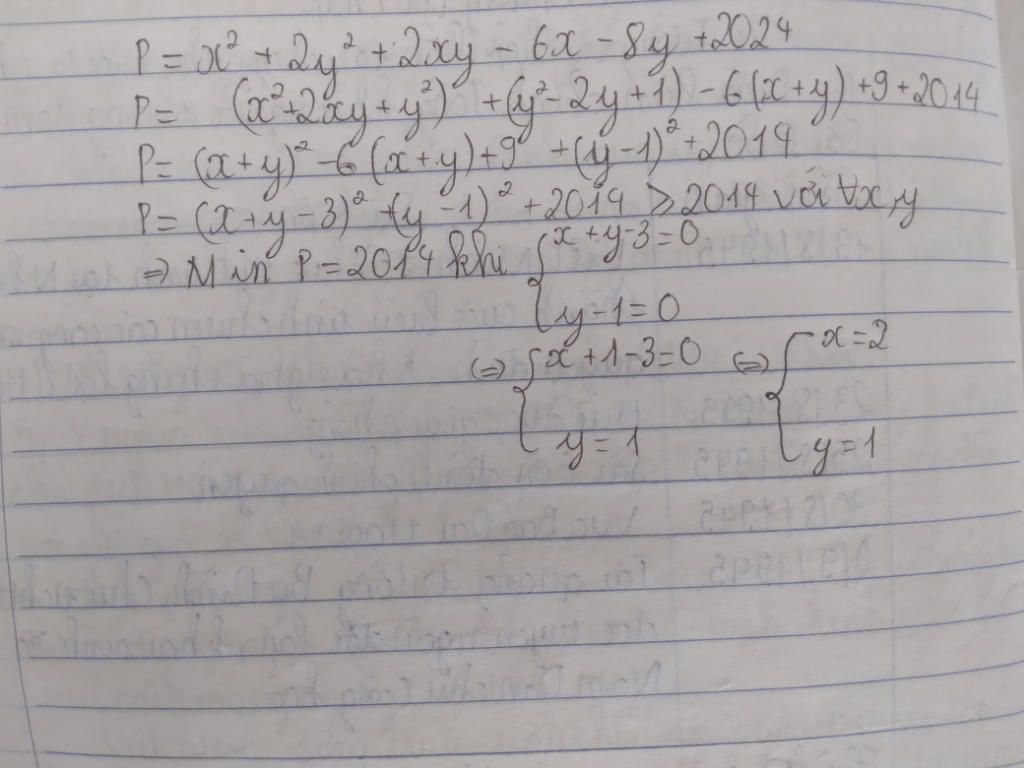 P = x² + 2y² + 2xy - 6x - 8y + 2024
P = (x² + 2xy + y²) + (y² - 2y + 1) - 6(x + y) + 9 + 2014
P = (x + y)² - 6(x + y) + 9 + (y - 1)² + 2014
P = (x + y - 3)² + (y - 1)² + 2014 ≥ 2014 với ∀x, y
⇒ Min P = 2014 khi { x + y - 3 = 0
y - 1 = 0
(=) { x + 1 - 3 = 0 (=) { x = 2
y = 1 y = 1